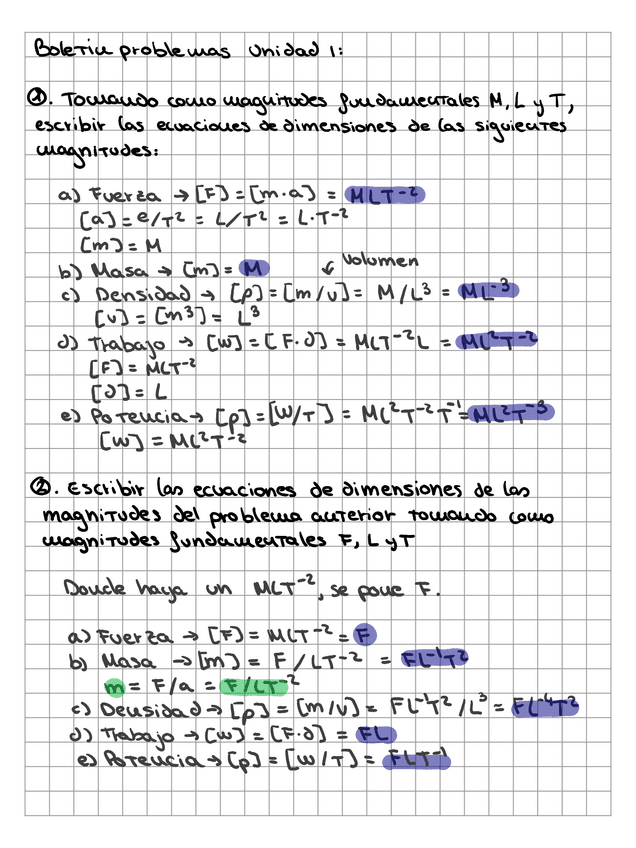 Boletín problemas Unidad 1:
①. Tomando como magnitudes fundamentales M, L y T,
escribir las ecuaciones de dimensiones de las siguientes
magnitudes:
a) Fuerza → [F] = [m·a] = MLT⁻²
[a] = e/T² = L/T² = L·T⁻²
[m] = M
b) Masa → [m] = M
↙ Volumen
c) Densidad → [ρ] = [m/v] = M/L³ = ML⁻³
[v] = [m³] = L³
d) Trabajo → [W] = [F·d] = MLT⁻²L = ML²T⁻²
[F] = MLT⁻²
[d] = L
e) Potencia → [p] = [W/T] = ML²T⁻²T⁻¹ = ML²T⁻³
[W] = ML²T⁻²
②. Escribir las ecuaciones de dimensiones de las
magnitudes del problema anterior tomando como
magnitudes fundamentales F, L y T
Donde haya un MLT⁻², se pone F.
a) Fuerza → [F] = MLT⁻² = F
b) Masa → [m] = F/LT⁻² = FL⁻¹T²
m = F/a = F/LT⁻²
c) Densidad → [ρ] = [m/v] = FL⁻¹T²/L³ = FL⁻⁴T²
d) Trabajo → [W] = [F·d] = FL
e) Potencia → [p] = [W/T] = FLT⁻¹